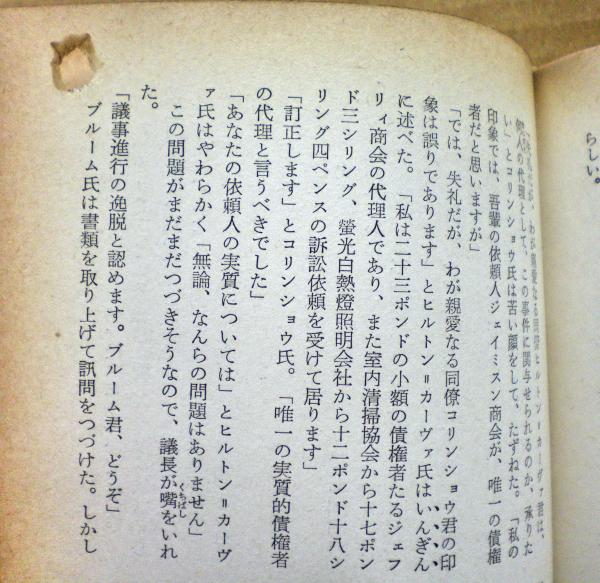 らしい。
わが親愛なる同僚ヒルトン＝カーヴァ君は、
人の代理として、この事件に関与せられるのか、承りた
い」とコリンショウ氏は苦い顔をして、たずねた。「私の
印象では、吾輩の依頼人ジェイミスン商会が、唯一の債権
者だと思いますが」
「では、失礼だが、わが親愛なる同僚コリンショウ君の印
象は誤りであります」とヒルトン＝カーヴァ氏はいんぎん
に述べた。「私は二十三ポンドの小額の債権者たるジェフ
リィ商会の代理人であり、また室内清掃協会から十七ポン
ド三シリング、螢光白熱燈照明会社から十二ポンド十八シ
リング四ペンスの訴訟依頼を受けて居ります」
「訂正します」とコリンショウ氏。「唯一の実質的債権者
の代理と言うべきでした」
「あなたの依頼人の実質については」とヒルトン＝カーヴ
ァ氏はやわらかく「無論、なんらの問題はありません」
この問題がまだまだつづきそうなので、議長が嘴をいれ
くちばし
た。
「議事進行の逸脱と認めます。ブルーム君、どうぞ」
ブルーム氏は書類を取り上げて訊問をつづけた。しかし